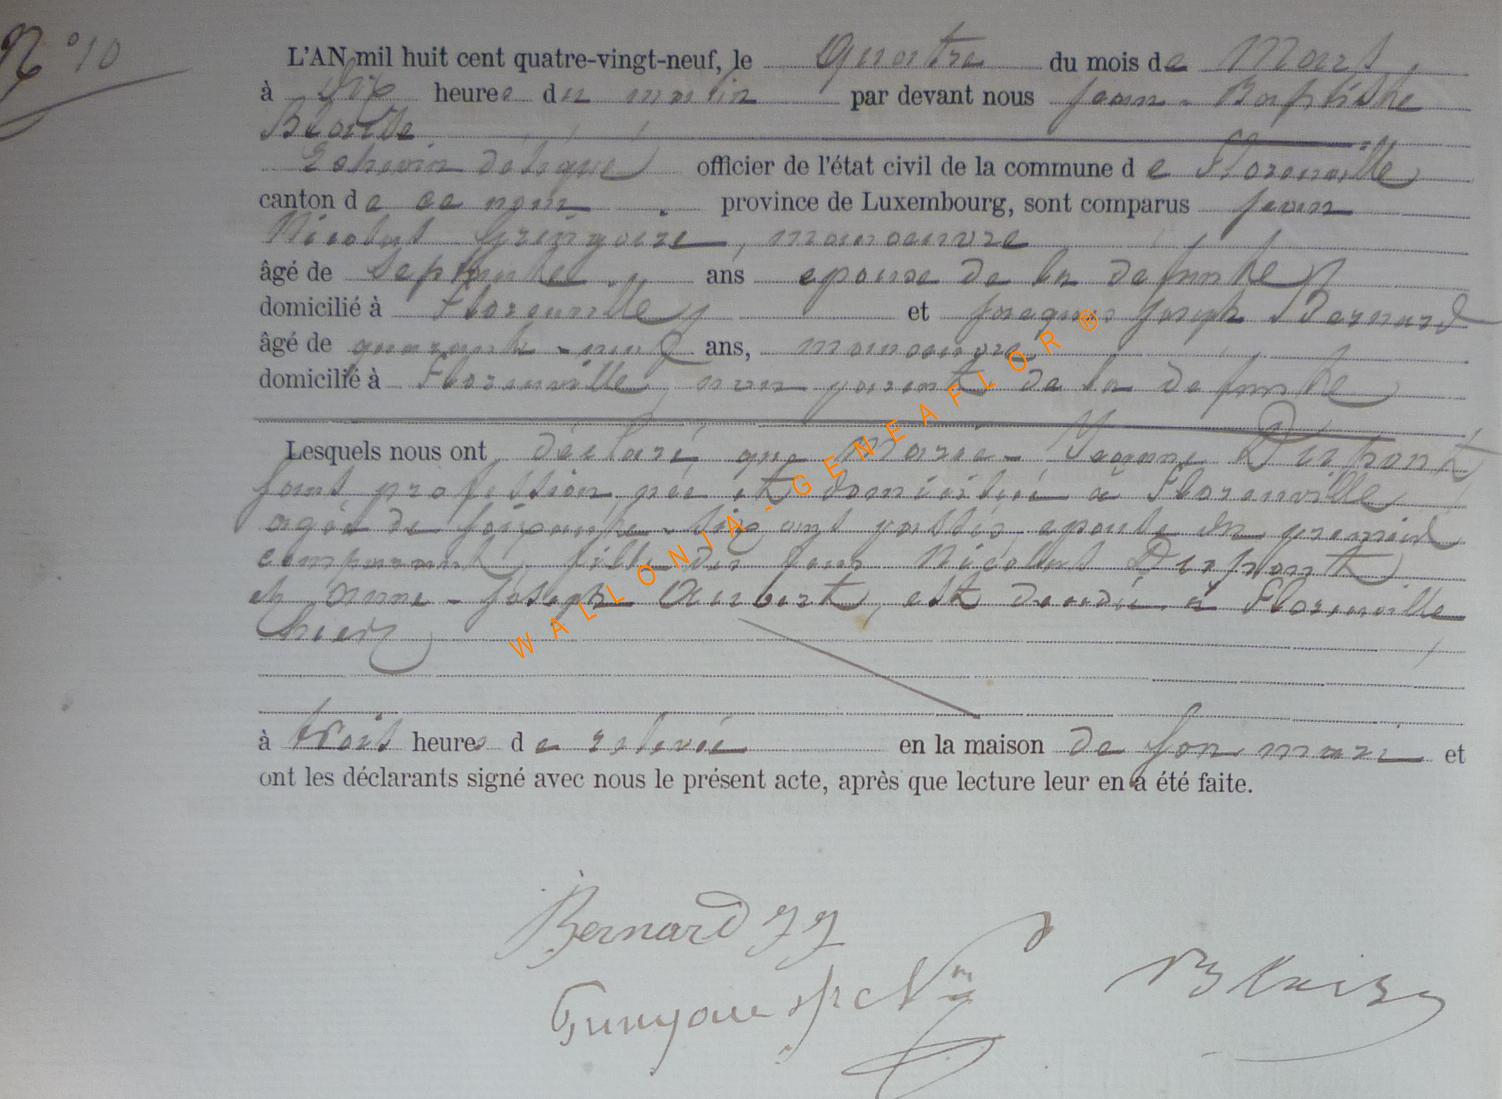 N° 10
L'AN mil huit cent quatre-vingt-neuf, le quatre du mois de Mars
à Dix heures du matin par devant nous Jean-Baptiste
Blaise
Echevin délégué officier de l'état civil de la commune de Florenville
canton de ce nom province de Luxembourg, sont comparus Jean
Nicolas Gringoire, manoeuvre
âgé de septante ans epoux de la defunte
domicilié à Florenville et Jacques Joseph Bernard
âgé de quarante-neuf ans, manoeuvre
domicilié à Florenville, non parent de la défunte
Lesquels nous ont déclaré que Marie-Jeanne Dupont
sans profession née et domiciliée à Florenville
agée de soixante-six ans passés epouse du premier
comparant, fille des feus Nicolas Dupont
et Anne-Joseph Aubert, est décédée à Florenville
hier
à trois heures de relevée en la maison de son mari et
ont les déclarants signé avec nous le présent acte, après que lecture leur en a été faite.
Bernard J J
WALLONIA-GENEAFLOR ®